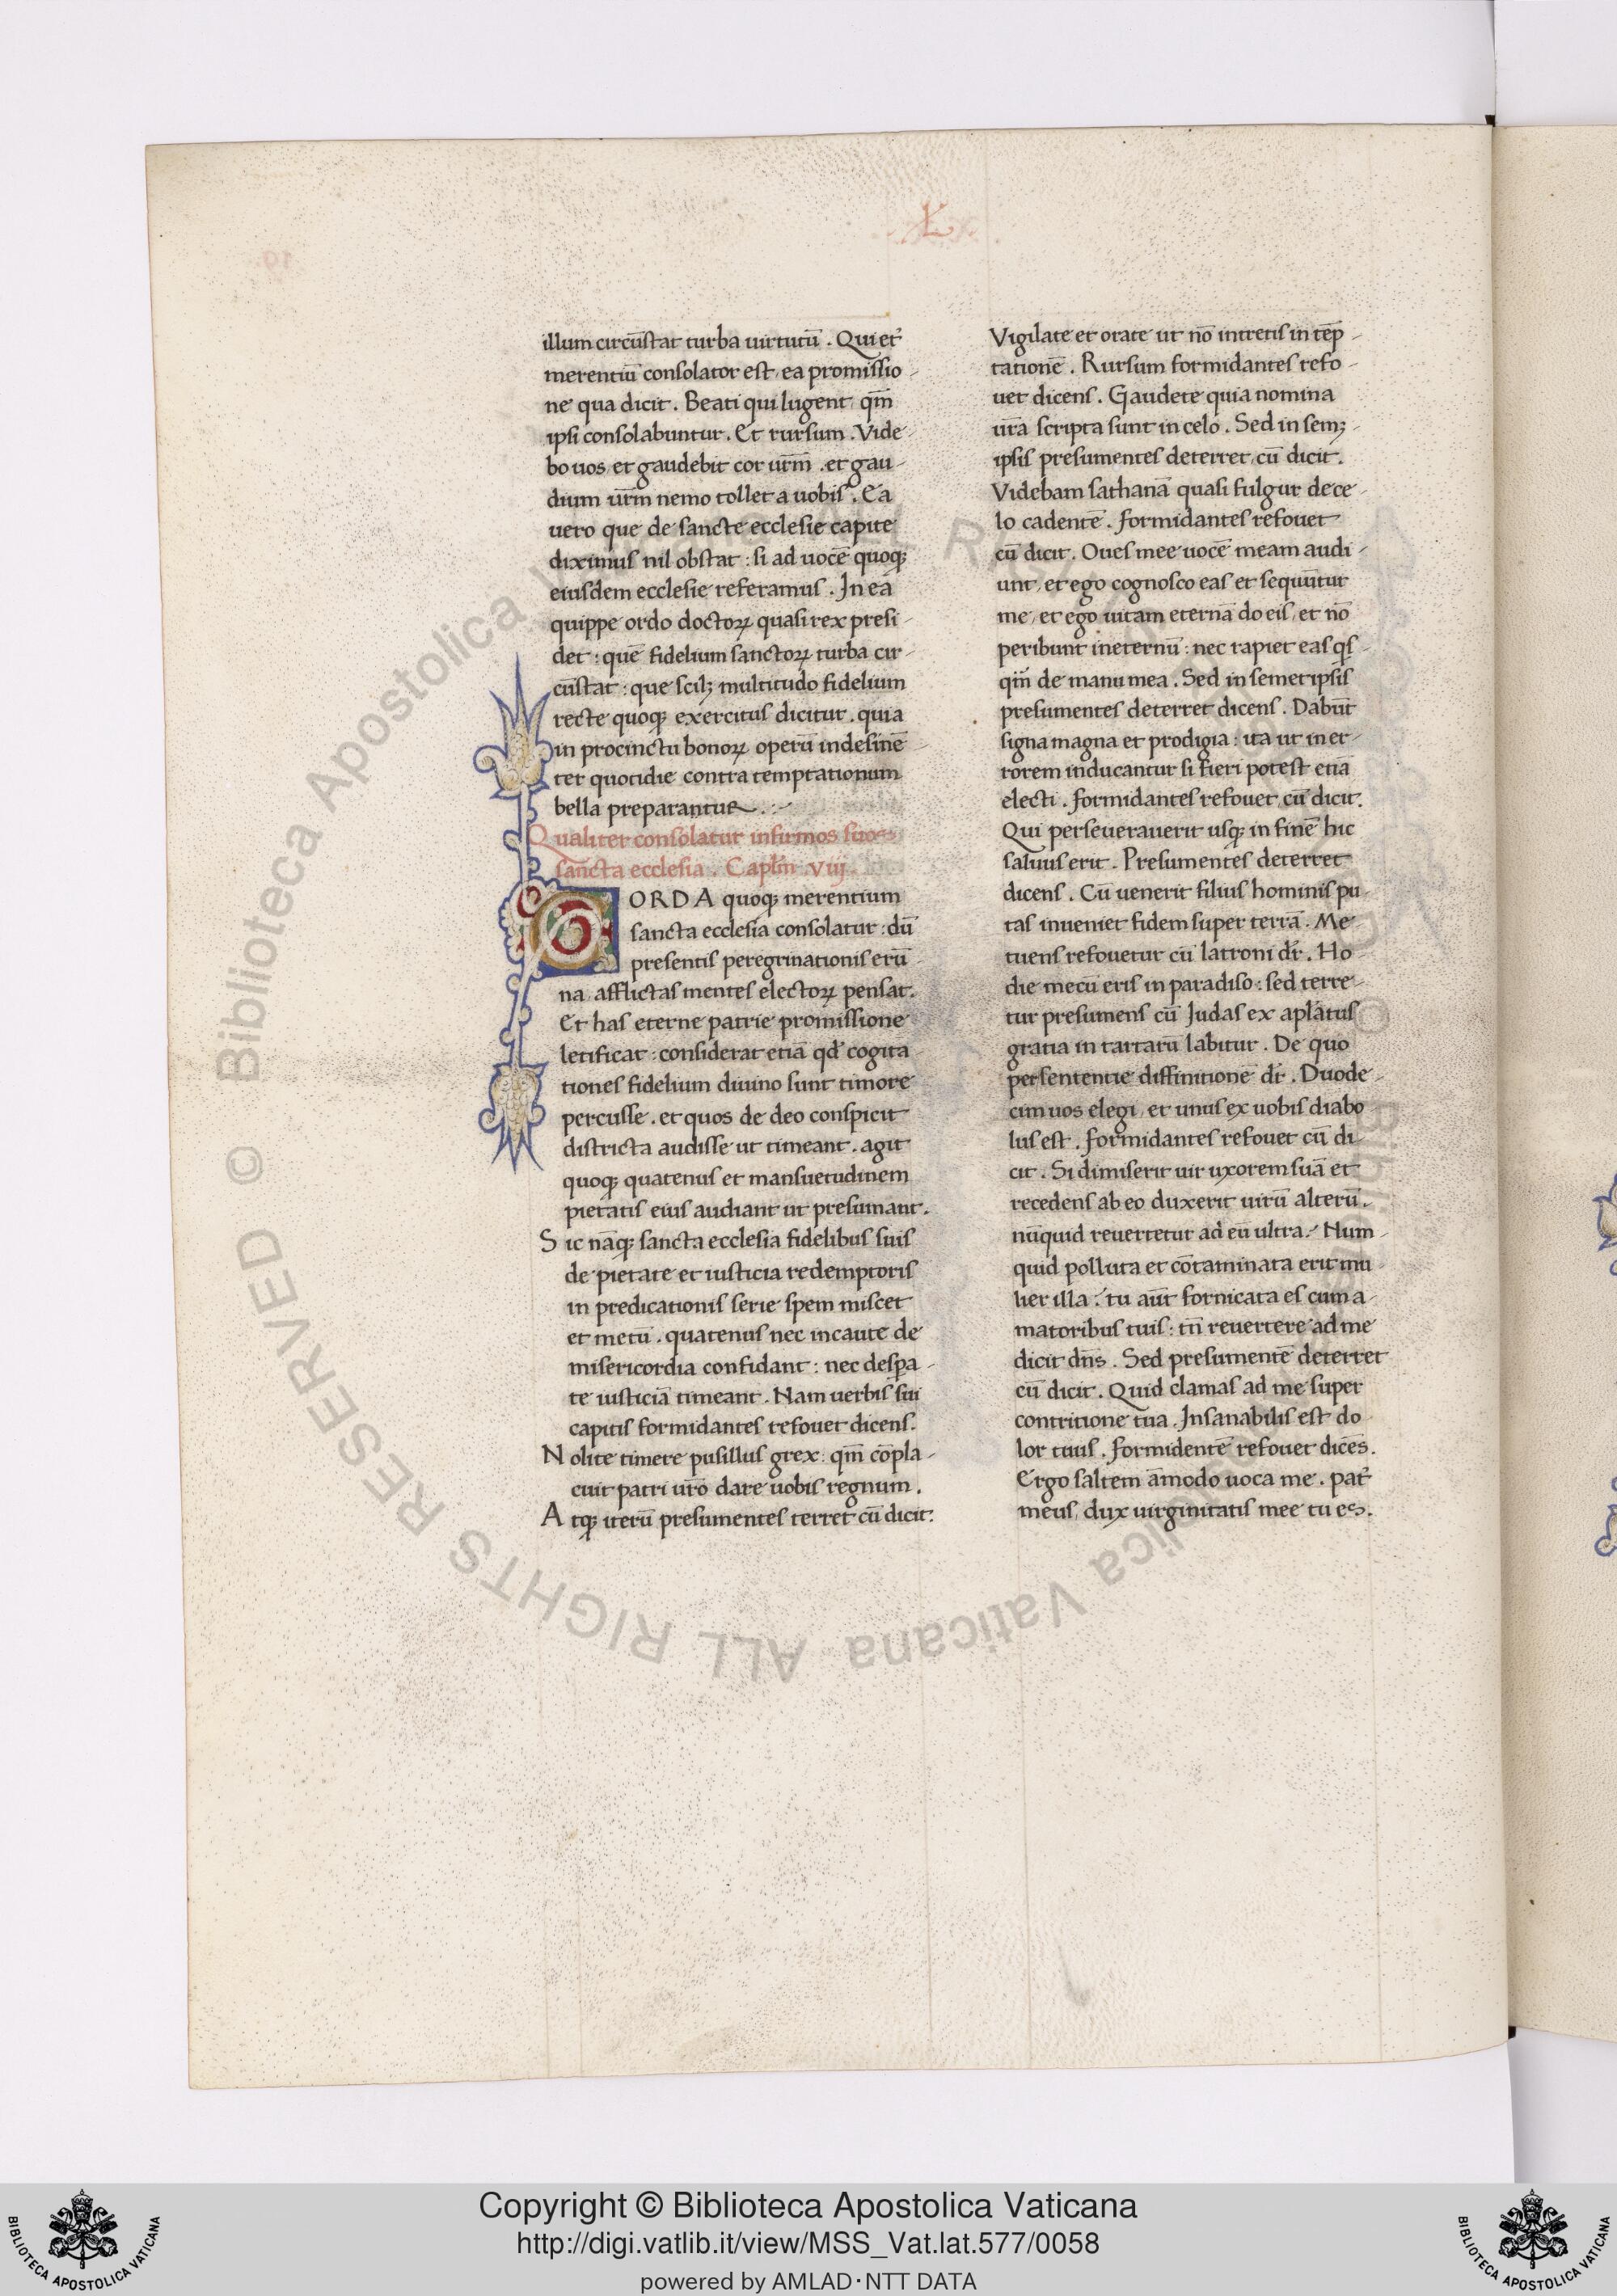 L
illum circūstat turba uirtutū. Qui et᷒
merentiū consolator est, ea promissio-
ne qua dicit. Beati qui lugent, qm̄
ipsi consolabuntur. Et rursum. Vide-
bo uos, et gaudebit cor ur̄m. et gau-
dium ur̄m nemo tollet a uobis. Ea
uero que de sancte ecclesie capite
diximus nil obstat: si ad uocē quoqꝫ
eiusdem ecclesie referamus. In ea
quippe ordo doctoꝝ quasi rex presi-
det: quē fidelium sanctoꝝ turba cir-
cūstat: que scilꝫ multitudo fidelium
recte quoqꝫ exercitus dicitur. quia
in procinctu bonoꝝ operū indesinē-
ter quotidie contra temptationum
bella preparantur.
Qualiter consolatur infirmos suos
sancta ecclesia. Capl̄m .viij.
CORDA quoqꝫ merentium
sancta ecclesia consolatur: dū
presentis peregrinationis erū-
na, afflictas mentes electoꝝ pensat.
Et has eterne patrie promissione
letificat: considerat etiā qd̓ cogita-
tiones fidelium diuino sunt timore
percusse. et quos de deo conspicit
districta audisse ut timeant. agit
quoqꝫ quatenus et mansuetudinem
pietatis eius audiant ut presumant.
Sic nāqꝫ sancta ecclesia fidelibus suis
de pietate et iusticia redemptoris
in predicationis serie spem miscet
et metū. quatenus nec incaute de
misericordia confidant: nec despa-
te iusticiā timeant. Nam uerbis sui
capitis formidantes refouet dicens.
Nolite timere pusillus grex: qm̄ cōpla-
cuit patri ur̄o dare uobis regnum.
Atqꝫ iterū presumentes terret cū dicit:
Vigilate et orate ut nō intretis in tēp-
tationē. Rursum formidantes refo-
uet dicens. Gaudete quia nomina
ur̄a scripta sunt in celo. Sed in semꝫ-
ipsis presumentes deterret, cū dicit.
Videbam sathanā quasi fulgur de ce-
lo cadentē. formidantes refouet
cū dicit. Oues mee uocē meam audi-
unt, et ego cognosco eas et sequūtur
me, et ego uitam eternā do eis, et nō
peribunt in eternū: nec rapiet eas qs-
qm̄ de manu mea. Sed in semetipsis
presumentes deterret dicens. Dabūt
signa magna et prodigia: ita ut in er-
rorem inducantur si fieri potest etiā
electi. formidantes refouet, cū dicit.
Qui perseuerauerit usqꝫ in finē hic
saluus erit. Presumentes deterret
dicens. Cū uenerit filius hominis pu-
tas inueniet fidem super terrā. Me-
tuens refouetur cū latroni dr̄. Ho-
die mecū eris in paradiso: sed terre-
tur presumens cū Judas ex apl̄atus
gratia in tartarū labitur. De quo
per sententie diffinitionē dr̄. Duode-
cim uos elegi, et unus ex uobis diabo
lus est. formidantes refouet cū di-
cit. Si dimiserit uir uxorem suā et
recedens ab eo duxerit uirū alterū.
nūquid reuertetur ad eū ultra? Num-
quid polluta et cōtaminata erit mu-
lier illa? tu aūt fornicata es cum a-
matoribus tuis: tn̄ reuertere ad me
dicit dn̄s. Sed presumentē deterret
cū dicit. Quid clamas ad me super
contritione tua. Insanabilis est do-
lor tuus. formidentē refouet dicēs.
Ergo saltem āmodo uoca me. pat᷒
meus, dux uirginitatis mee tu es.
Copyright © Biblioteca Apostolica Vaticana
http://digi.vatlib.it/view/MSS_Vat.lat.577/0058
powered by AMLAD·NTT DATA
BIBLIOTECA APOSTOLICA VATICANA
BIBLIOTECA APOSTOLICA VATICANA
© Biblioteca Apostolica Vaticana ALL RIGHTS RESERVED